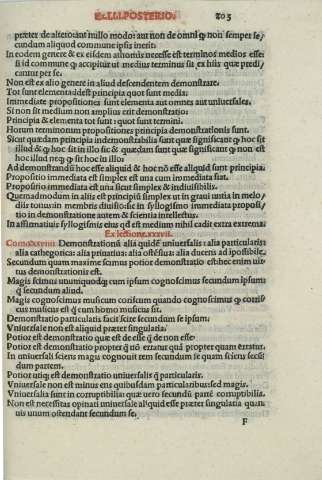 EX. I. LI. POSTERIO. 203
præter de altero: aut nullo modo: aut non de omni ꝙ non semper se/
cundum aliquod commune ipsis inerit.
In eodem genere & ex eisdem athomis necesse est terminos medios esse:
si id commune ꝙ accipitur ut medius terminus sit ex his quæ predi/
cantur per se.
Non est ex alio genere in aliud descendentem demonstrare.
Tot sunt elementa idest principia quot sunt media:
Immediate propositiones sunt elementa aut omnes aut uniuersales.
Si non sit medium non amplius erit demonstratio:
Principia & elementa tot sunt: quot sunt termini.
Horum terminorum propositiones principia demonstrationis sunt.
Sicut quædam principia indemonstrabilia sunt quæ significant ꝙ hoc sit
illud & ꝙ hoc sit in illo sic & quædam sunt quæ significant ꝙ non est
hoc illud neqꝫ ꝙ sit hoc in illo:
Ad demonstrandū hoc esse aliquid & hoc nō esse aliquid sunt principia.
Propositio immediata est simplex est una cum immediata fiat.
Propositio immediata est una sicut simplex & indiuisibilis.
Quemadmodum in aliis est principiū simplex ut in graui untia in melo/
diis totius in membris diuisio: sic in syllogismo immediata propositi
tio in demonstratione autem & scientia intellectus.
In affirmatiuis syllogismis eius qd est medium nihil cadit extra extrema.
Ex lectione. xxxvii.
Com. xxxviiii. Demonstrationū alia quidē uniuersalis: alia particularis:
alia cathegorica: alia priuatiua: alia ostēsiua: alia ducens ad īpossibile.
Secundum quam maxime scimus potior demonstratio est: hec enim uir/
tus demonstrationis est.
Magis scimus unumquodqꝫ cum ipsum cognoscimus secundum ipsum
ꝙ secundum aliud.
Magis cognoscimus musicum coriscum quando cognoscimus ꝙ coris/
cus musicus est ꝙ cum homo musicus sit.
Demonstratio particularis facit scire secundum se ipsum:
Vniuersale non est aliquid præter singularia:
Potior est demonstratio quæ est de esse ꝙ de non esse:
Potior est demonstratio propter ꝙ nō erratur quā propter quam erratur.
In uniuersali sciens magis cognouit rem secundum se quam sciens secun
dum partem.
Potior utiqꝫ est demonstratio uniuersalis ꝙ particularis.
Vniuersale non est minus ens quibusdam particularibus: sed magis.
Vniuersalia sunt incorruptibilia: quæ uero secundū partē corruptibilia.
Non est necessitas opinari uniuersale aliquid esse præter singularia quan
uis unum ostendant secundum se.
F